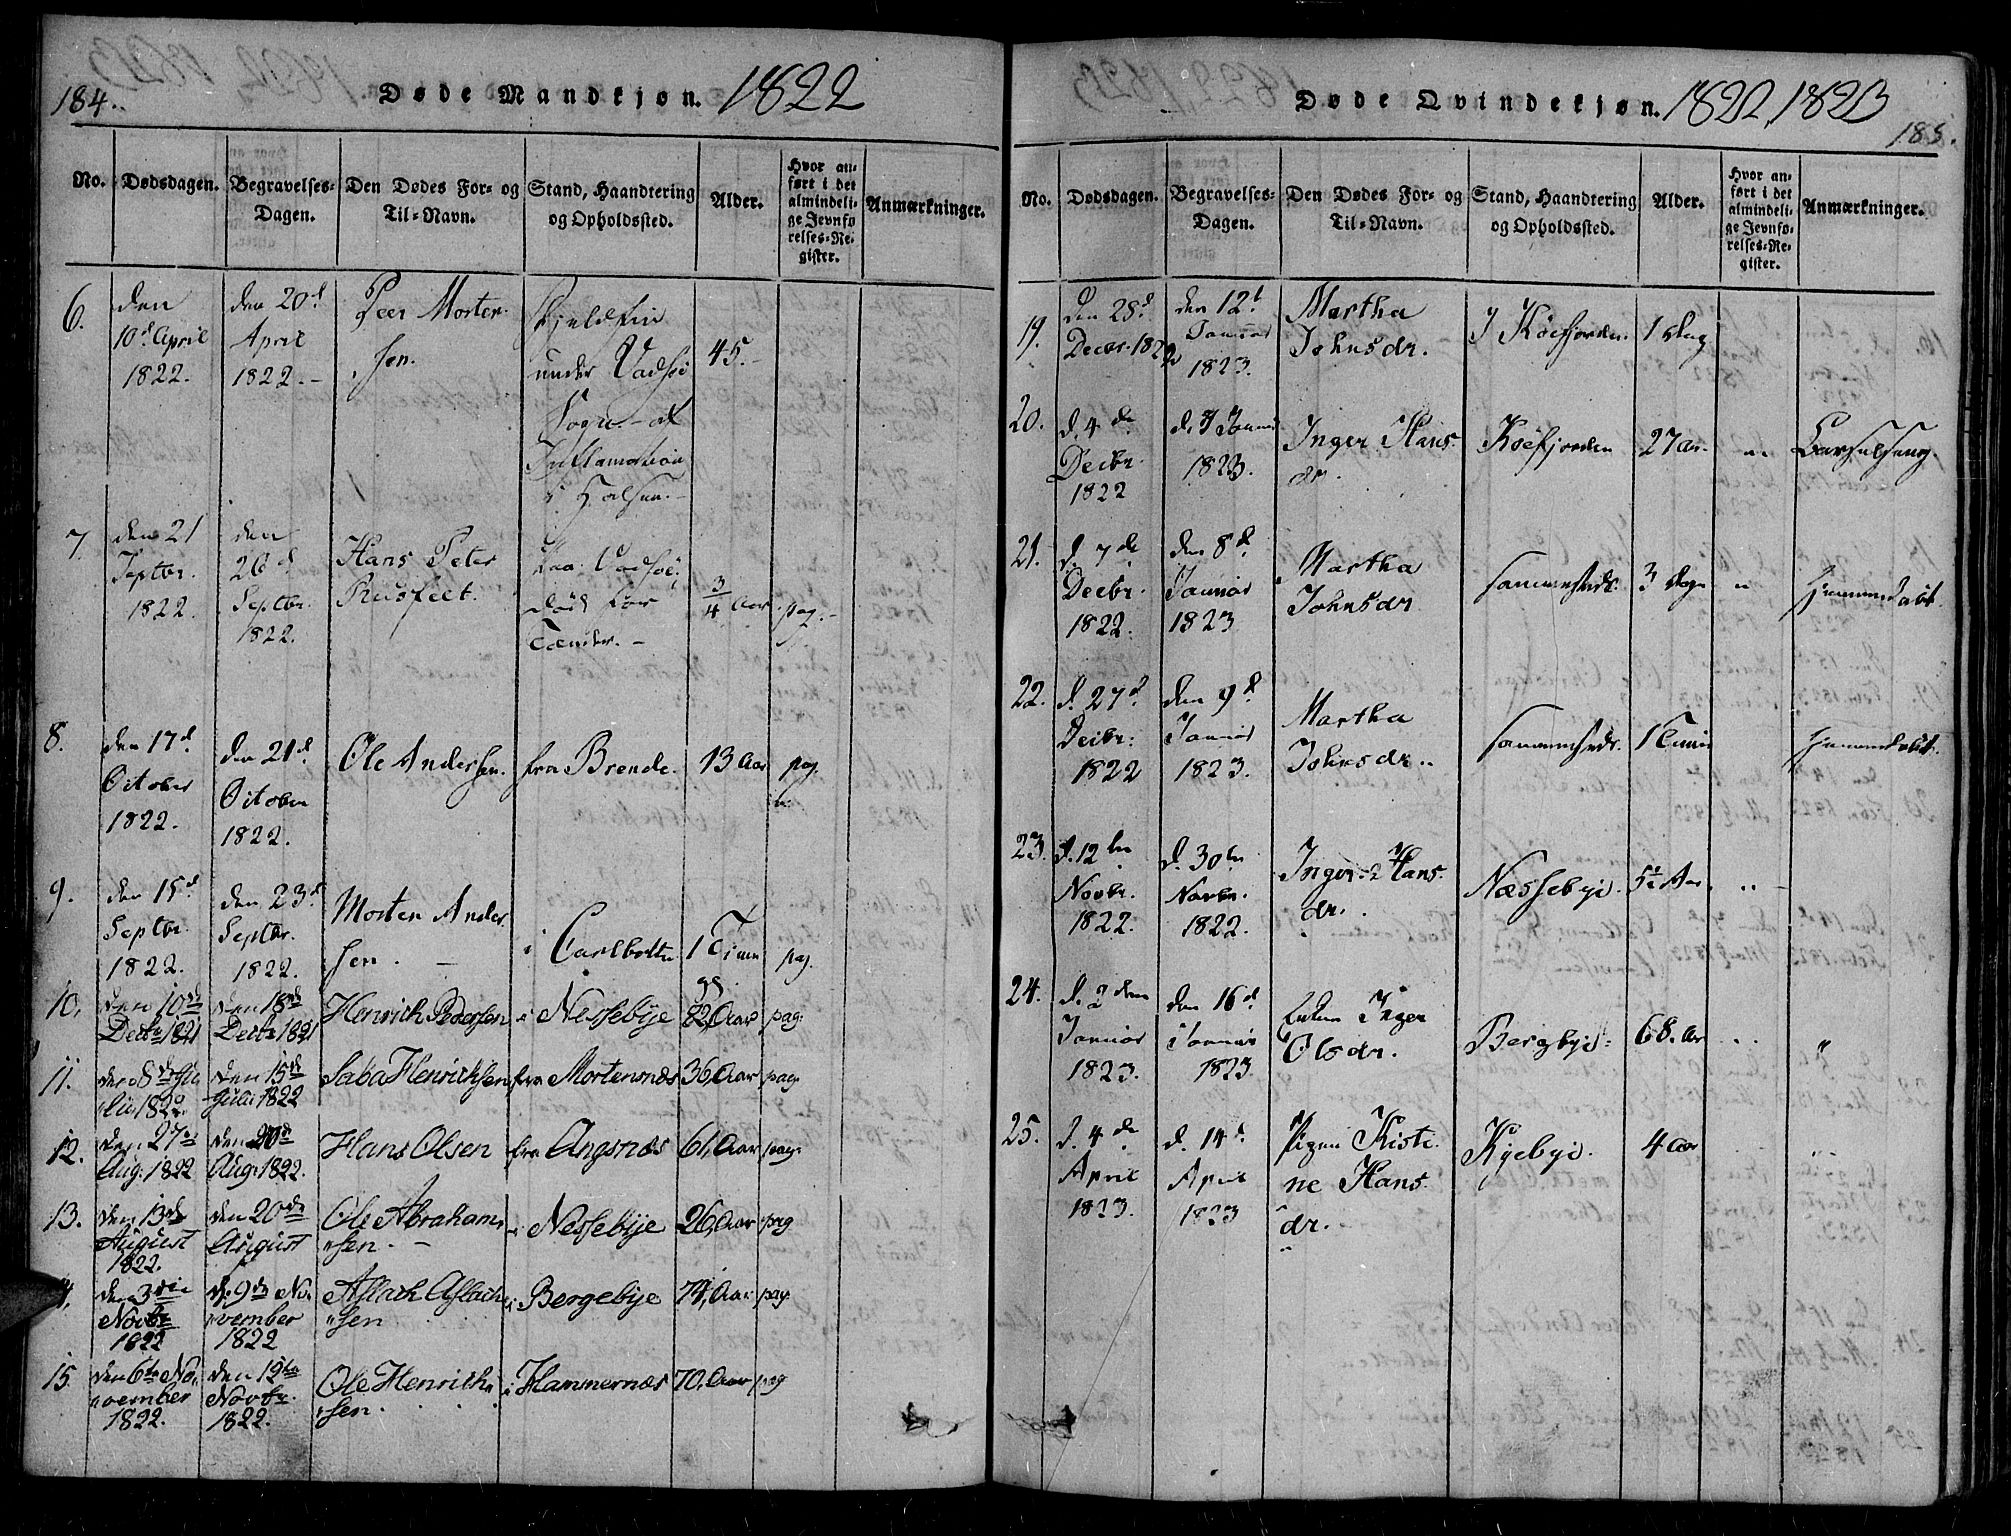 184.
Døde Mandkjøn. 1822
No.
Dødsdagen.
Begravelses-
Dagen.
Den Dødes For- og
Til-Navn.
Stand, Haandtering
og Opholdssted.
Alder.
Hvor an-
ført i det
almindeli-
ge Jevnfø
relses-Re-
gister.
Anmærkninger.
6.
den
10d April
1822.
den 20d
April
1822.-
Peer Morten-
sen.
Fjeldfin
under Vadsöe
Sogn - af
Inflamation
i Halsen.-
45.-
7.
den 21
Septbr.
1822.
den
26d
Septbr.
1822.
Hans Peter
Rusfeet.
Vadsöe,
död for
Tænder.-
3/4 Aar
pag.-
8.
den 17d.
October
1822.
den 21d
October
1822.
Ole Andersen.
fra Brende.
13 Aar
pag.
9.
den 15d
Septbr.
1822.
den 23d
Septbr.
1822.
Morten Ander
sen. -
i Carlbotten
1 Time
pag.
10.
den 10de
Decbr 1821
den 18de
Decbr 1821
Henrich Pedersen
i Nessebÿe
82, Aar
pag.
11.
den 8de Ju
lii 1822.
den 15de
Julii 1822
Saba Henrichsen
fra Mortensnæs
36, Aar
pag.
12.
den 27de
Aug: 1822
den 20de
Aug: 1822.
Hans Olsen
fra Angsnæs
61, Aar
pag.
13.
den 13de
August
1822.
den 20de
August
Ole Abrahams
sen. -
i Nessebÿe
26, Aar
pag
14.
den 3die
Novbr
1822
d. 9de No-
vember
1822
Aslach Aslach
sen
i Bergebÿe
74, Aar
pag.
15.
den 6te No-
vember
1822.
den 12te
Novbr.
1822.
Ole Henrich
sen.
i Hammernæs
70, Aar
pag
Døde Qvindekjøn. 1822, 1823
185.
No.
Dødsdagen.
Begravelses-
Dagen.
Den Dødes For- og
Til-Navn.
Stand, Haandtering
og Opholdssted.
Alder.
Hvor an-
ført i det
almindeli-
ge Jevnfø-
relses-Re-
gister.
Anmærkninger.
19.
Den 28d.
Decbr. 1822
den 12t
Januar
1823.
Martha
Johnsdr.
I Köefjorden.
1 Dag
20.
d. 4de
Decbr.
1822
d. 7 Januar
1823.
Inger Hans-
dr.
Köefjorden
27 Aar.
Barselseng.
21.
d. 7de
Decbr.
1822.
den 8d.
Januar
1823
Martha
Johnsdr
sammesteds.
3 Dage
Hjemmedöbt.
22.
d. 27d.
Decbr.
1822
den 9d
Januar
1823.
Martha
Johnsdr..
sammesteds.
1 Time
Hjemmedöbt.
23.
d. 12te
Novbr.
1822.
d. 30te
Novbr.
1822.
Inger Hans-
dr.
Næssebye.
5½ Aar
24.
d. 2den
Januar
1823.
den 16d.
Januar
1823
Enken Inger
Olsdr.
Bergbye.
68. Aar
25.
d. 4de
April
1823.
d. 14d.
April
1823
Pigen Kisti
ne Hans-
dr.
Kyebye.
4 Aar